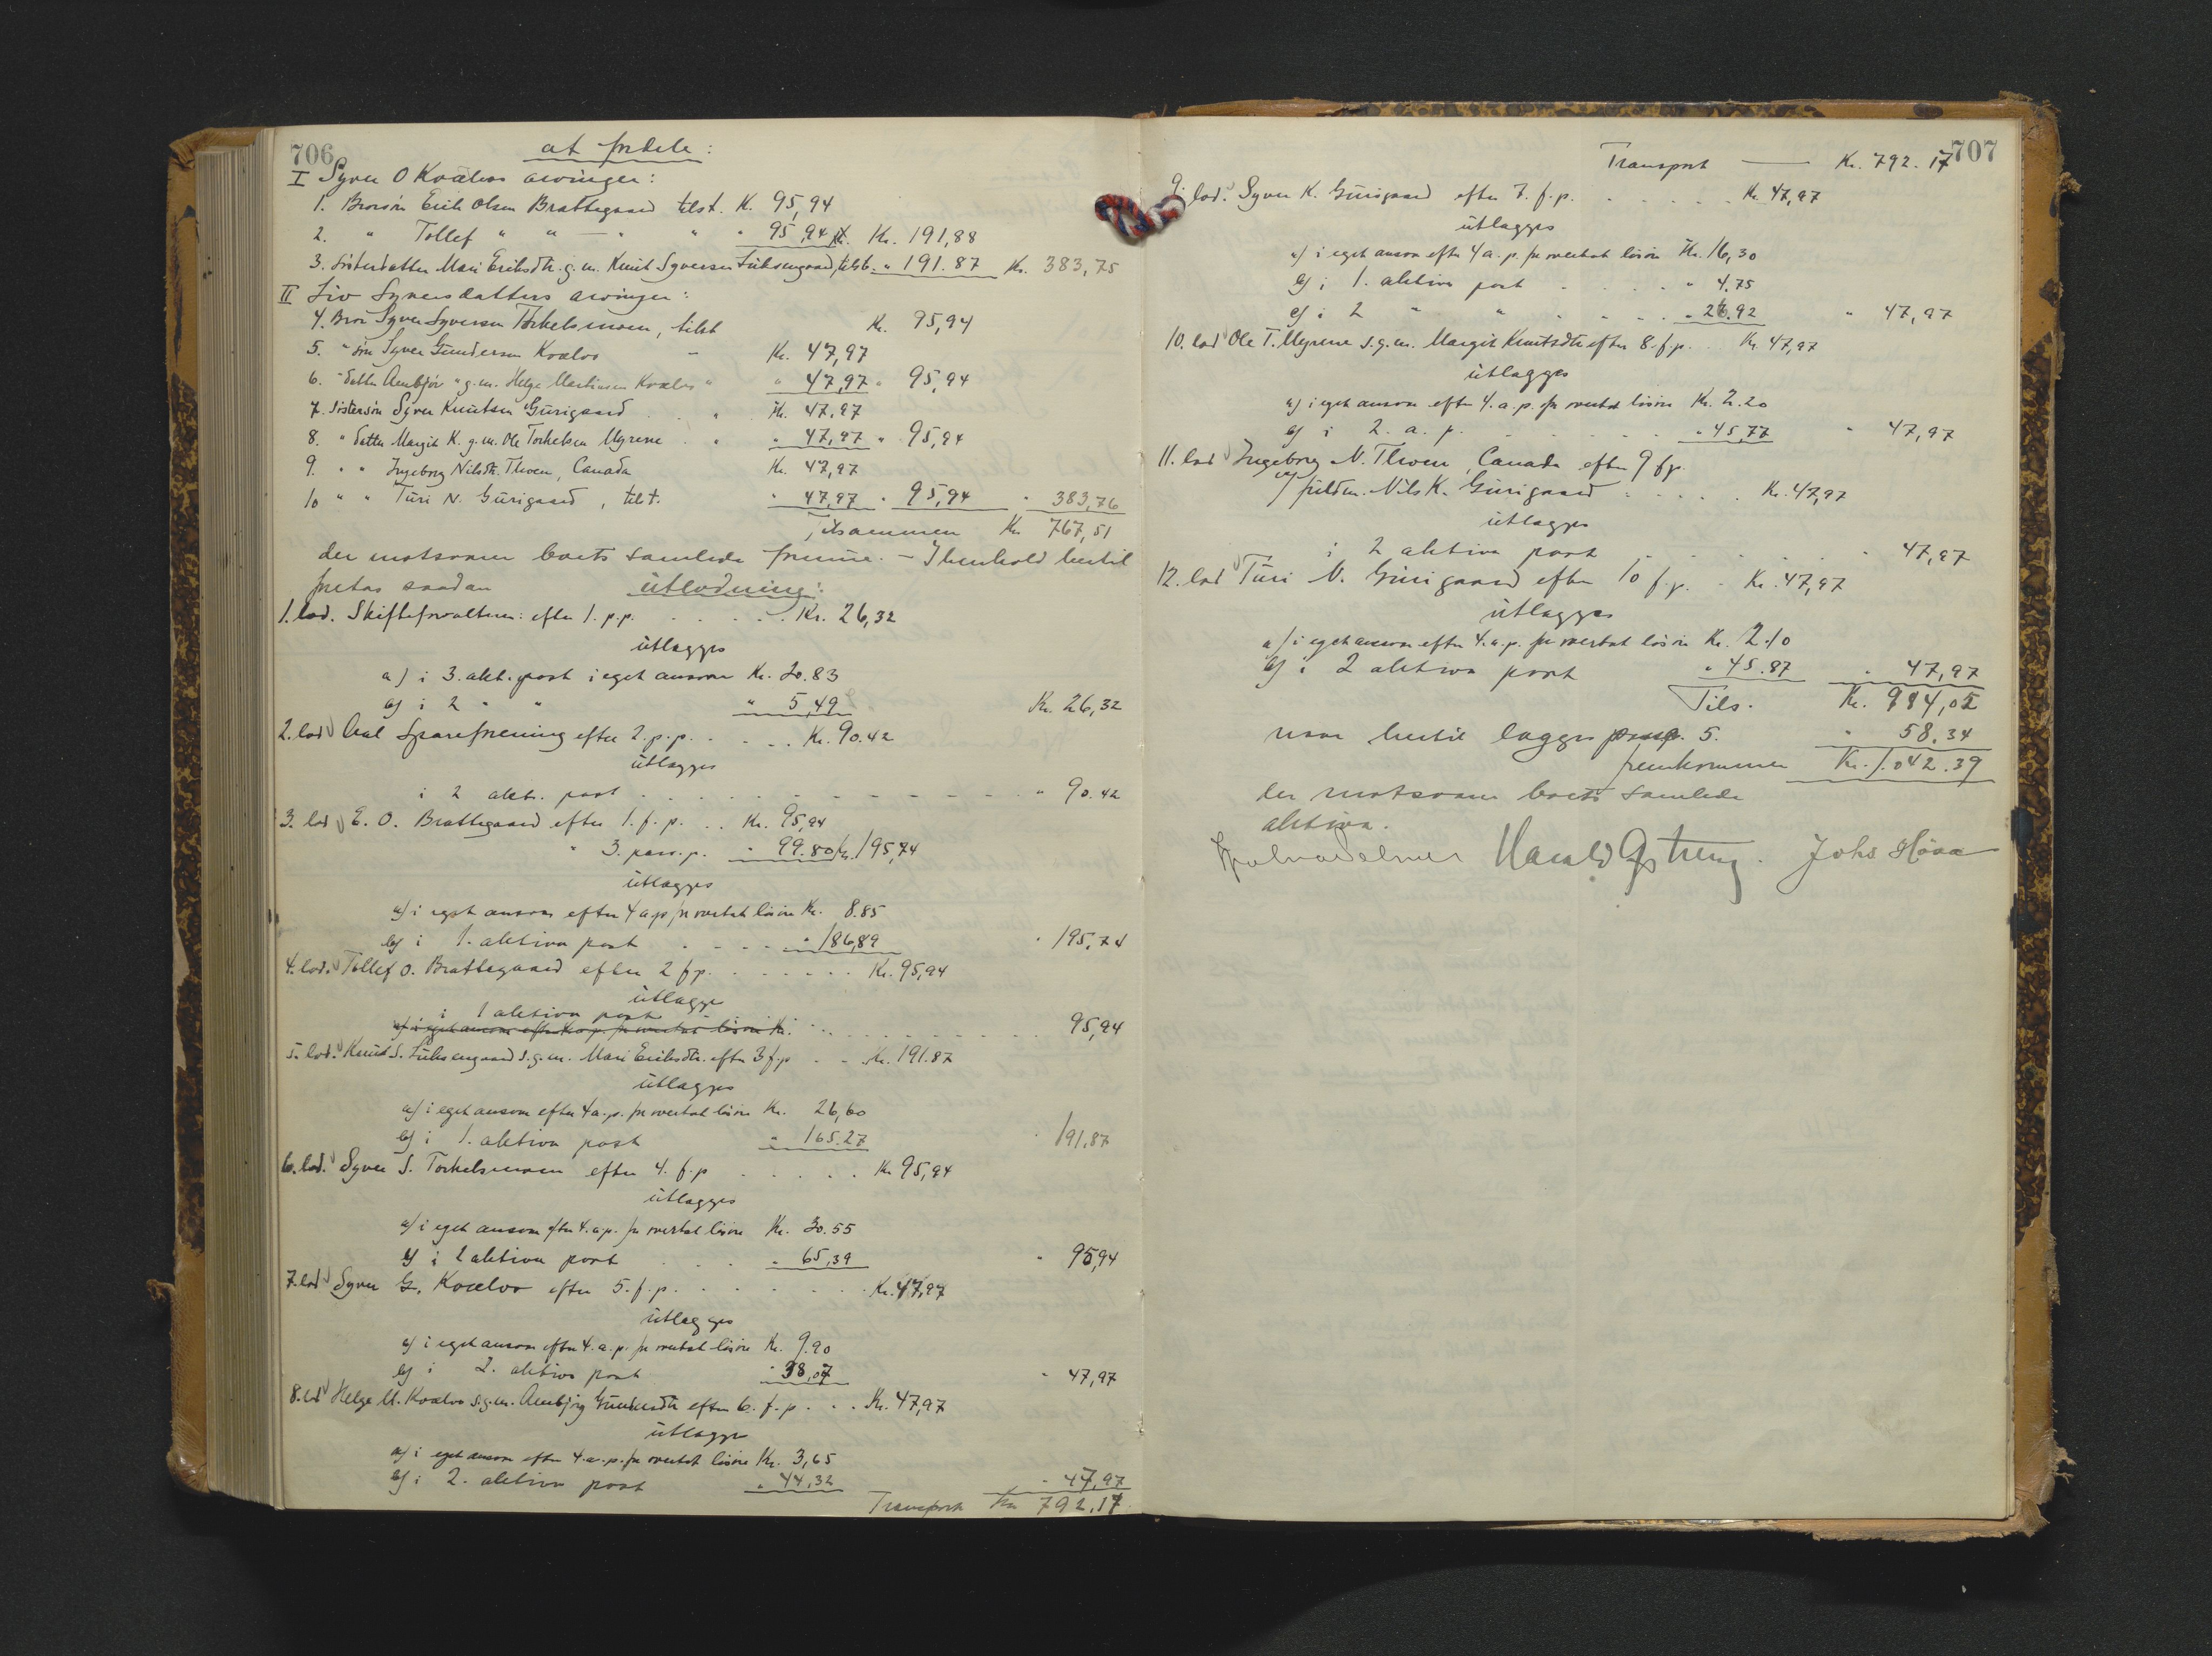 706
at fordele:
I Syver O Kvalos arvinger:
1. Brorsøn Erik Olsen Brattegaard tilst. K. 95,94
2. " Tollef " " — " " " 95,94 Kr. 191,88
3. Søsterdatter Mari Eriksdtr. g.m. Knut Syversen tilst. " 191.87 Kr. 383,75
II Liv Syversdatters arvinger:
4. Bror Syver Syversen Torkelsmoen, tilst Kr. 95,94
5. " søn Syver Gundersen Kvalos " Kr. 47,97
6. " datter Ambjør " g.m. Helge Kvalos " " 47,97 " 95,94
7. Søstersøn Syver Knutsen Gurigaard . " Kr. 47,97
8. " datter Margit K. g.m. Ole Torkelsen Myrene . " " 47,97 " 95,94
9. " " Ingeborg Nilsdtr. Thoen, Canada Kr. 47,97
10 " " Turi N. Gurigaard, tilst. " 47,97 " 95,94 " 383,76
Tilsammen Kr 767,51
der motsvarer boets samlede formue. — I henhold hertil
foretas saadan utlodning:
1. lod. Skifteforvalteren: efter 1. p.p. . . . . . Kr. 26,32
utlægges
a) i 3. akt. post i eget ansvar Kr. 20.83
b) i 2 " " " 5,49 Kr. 26,32
2. lod Aal Spareforening efter 2. p.p. . . . . Kr. 90.42
utlægges
i 2 akt. post . . . . . . . . " 90.42
3. lod E. O. Brattegaard efter 1. f.p. . . Kr. 95,94
" 3. pass.p. " 99.80 Kr. 195,74
utlægges
a) i eget ansvar efter 4 a.p. for overtat løsøre Kr. 8.85
b) i 1. aktiva post . . . . " 186,89 " 195,74
4. lod. Tollef O. Brattegaard efter 2 f.p. . . . . . . Kr. 95,94
utlægges
i 1 aktiva post
a) i eget ansvar efter 4 a.p. for overtat løsøre Kr. . . . . . . . 95,94
5. lod. Knut S. s.g.m. Mari Eriksdtr. efter 3 f.p. . . Kr. 191.87
utlægges
a) i eget ansvar efter 4 a.p. for overtat løsøre Kr. 26,60
b) i 1. aktiva post " 165.27 " 191,87
6. lod. Syver S. Torkelsmoen efter 4. f.p . . . . . Kr 95,94
utlægges
a) i eget ansvar efter 4. a.p. for overtat løsøre Kr. 30.55
b) i 1 aktiva post . . . " 65,39 " 95,94
7. lod Syver G. Kvalos efter 5. f.p. . . . . . . Kr. 47,97
utlægges
a) i eget ansvar efter 4. a.p. for overtat løsøre Kr. 9.90
b) i 2. aktiva post " 38,07 " 47,97
8. lod Helge M. Kvalos s.g.m. Ambjørg Gundersdtr efter 6. f.p. . . Kr. 47,97
utlægges
a) i eget ansvar efter 4. a.p. for overtat løsøre Kr. 3,65
b) i 2. aktiva post " 44,32 " 47,97
Transport Kr 792,17
707
Transport — Kr. 792.17
9. lod. Syver K. Gurigaard efter 7. f.p. . . . . . Kr 47,97
utlægges
a) i eget ansvar efter 4 a.p. for overtat løsøre Kr. 16,30
b) i 1. aktiva post . . . . " 4.75
c) i 2 " " . . . . " 26.92 " 47,97
10. lod Ole T. Myrene s.g.m. Margit Knutsdtr efter 8. f.p. . Kr. 47,97
utlægges
a) i eget ansvar efter 4. a.p. for overtat løsøre Kr. 2.20
b) i 2. a.p. . . . . . " 45,77 " 47,97
11. lod Ingeborg N. Thoen, Canada efter 9 f.p.
v/ fuldm. Nils K. Gurigaard . . . . . Kr. 47,97
utlægges
i 2 aktiva post . . . . . " 47,97
12. lod Turi N. Gurigaard efter 10 f.p. . Kr. 47,97
utlægges
a) i eget ansvar efter 4. a.p. for overtat løsøre Kr. 2.10
b) i 2 aktiva post " 45.87 " 47,97
Tils. Kr. 984,05
naar hertil lægges pasp. 5. " 58.34
fremkommer Kr. 1.042.39
der motsvarer boets samlede
aktiva.
Johs Høva